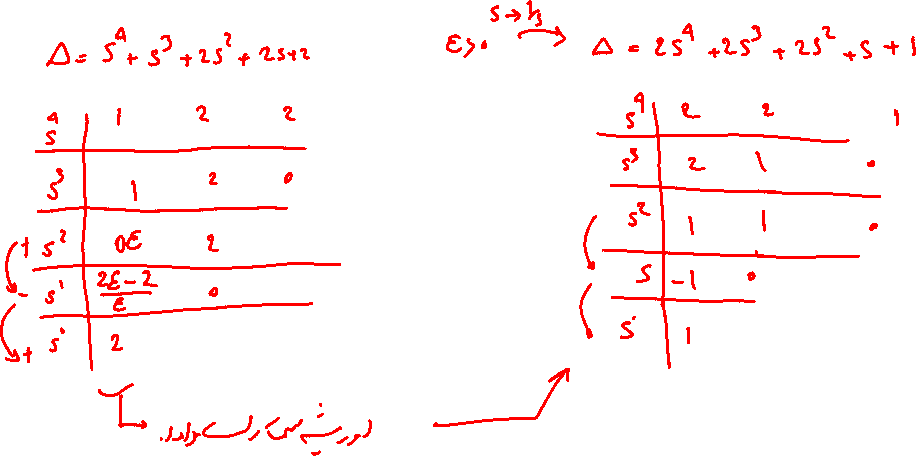 Δ = s⁴ + s³ + 2s² + 2s + 2
s⁴ | 1 2 2
s³ | 1 2 0
+ s² | 0ε 2
- s¹ | (2ε-2)/ε 0
+ s⁰ | 2
ε > 0
s → 1/s
Δ = 2s⁴ + 2s³ + 2s² + s + 1
s⁴ | 2 2 1
s³ | 2 1 0
s² | 1 1 0
s | -1 0
s⁰ | 1